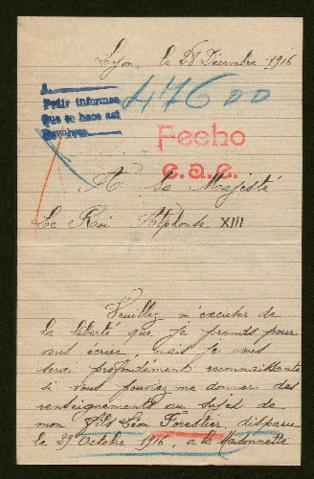 Lyon, le 28 Décembre 1916
A
Pedir informes
Que se hace así
476 DD
Fecho
e.a.e.
A Sa Majesté
Le Roi Alphonse XIII
Veuillez m'excuser de
la liberté que je prends pour
vous écrire mais je vous
serai profondément reconnaissante
si vous pouviez me donner des
renseignements au sujet de
mon fils Léon Forestier, disparu
le 27 Octobre 1916, a la Maisonnette